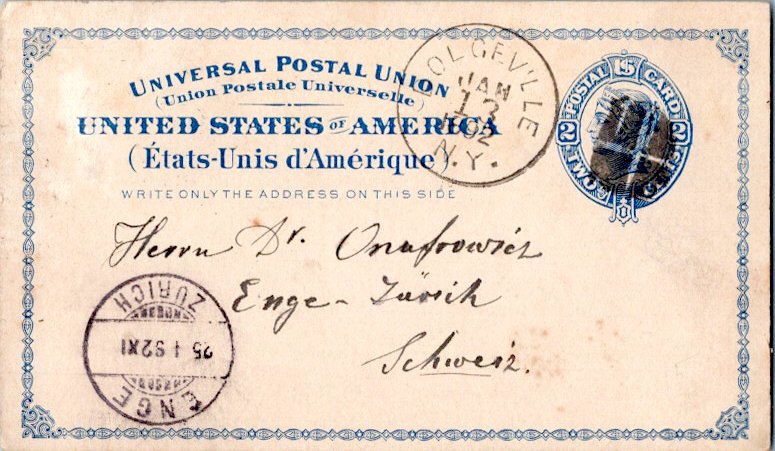 UNIVERSAL POSTAL UNION
(Union Postale Universelle)
UNITED STATES OF AMERICA
(États-Unis d'Amérique)
WRITE ONLY THE ADDRESS ON THIS SIDE
DOLGEVILLE
JAN
13
92
N.Y.
POSTAL U.S. CARD
2 2
Herrn Dr. Onufrowicz
Enge - Zürich
Schweiz.
ENGE
25 I 92 XI
ZÜRICH